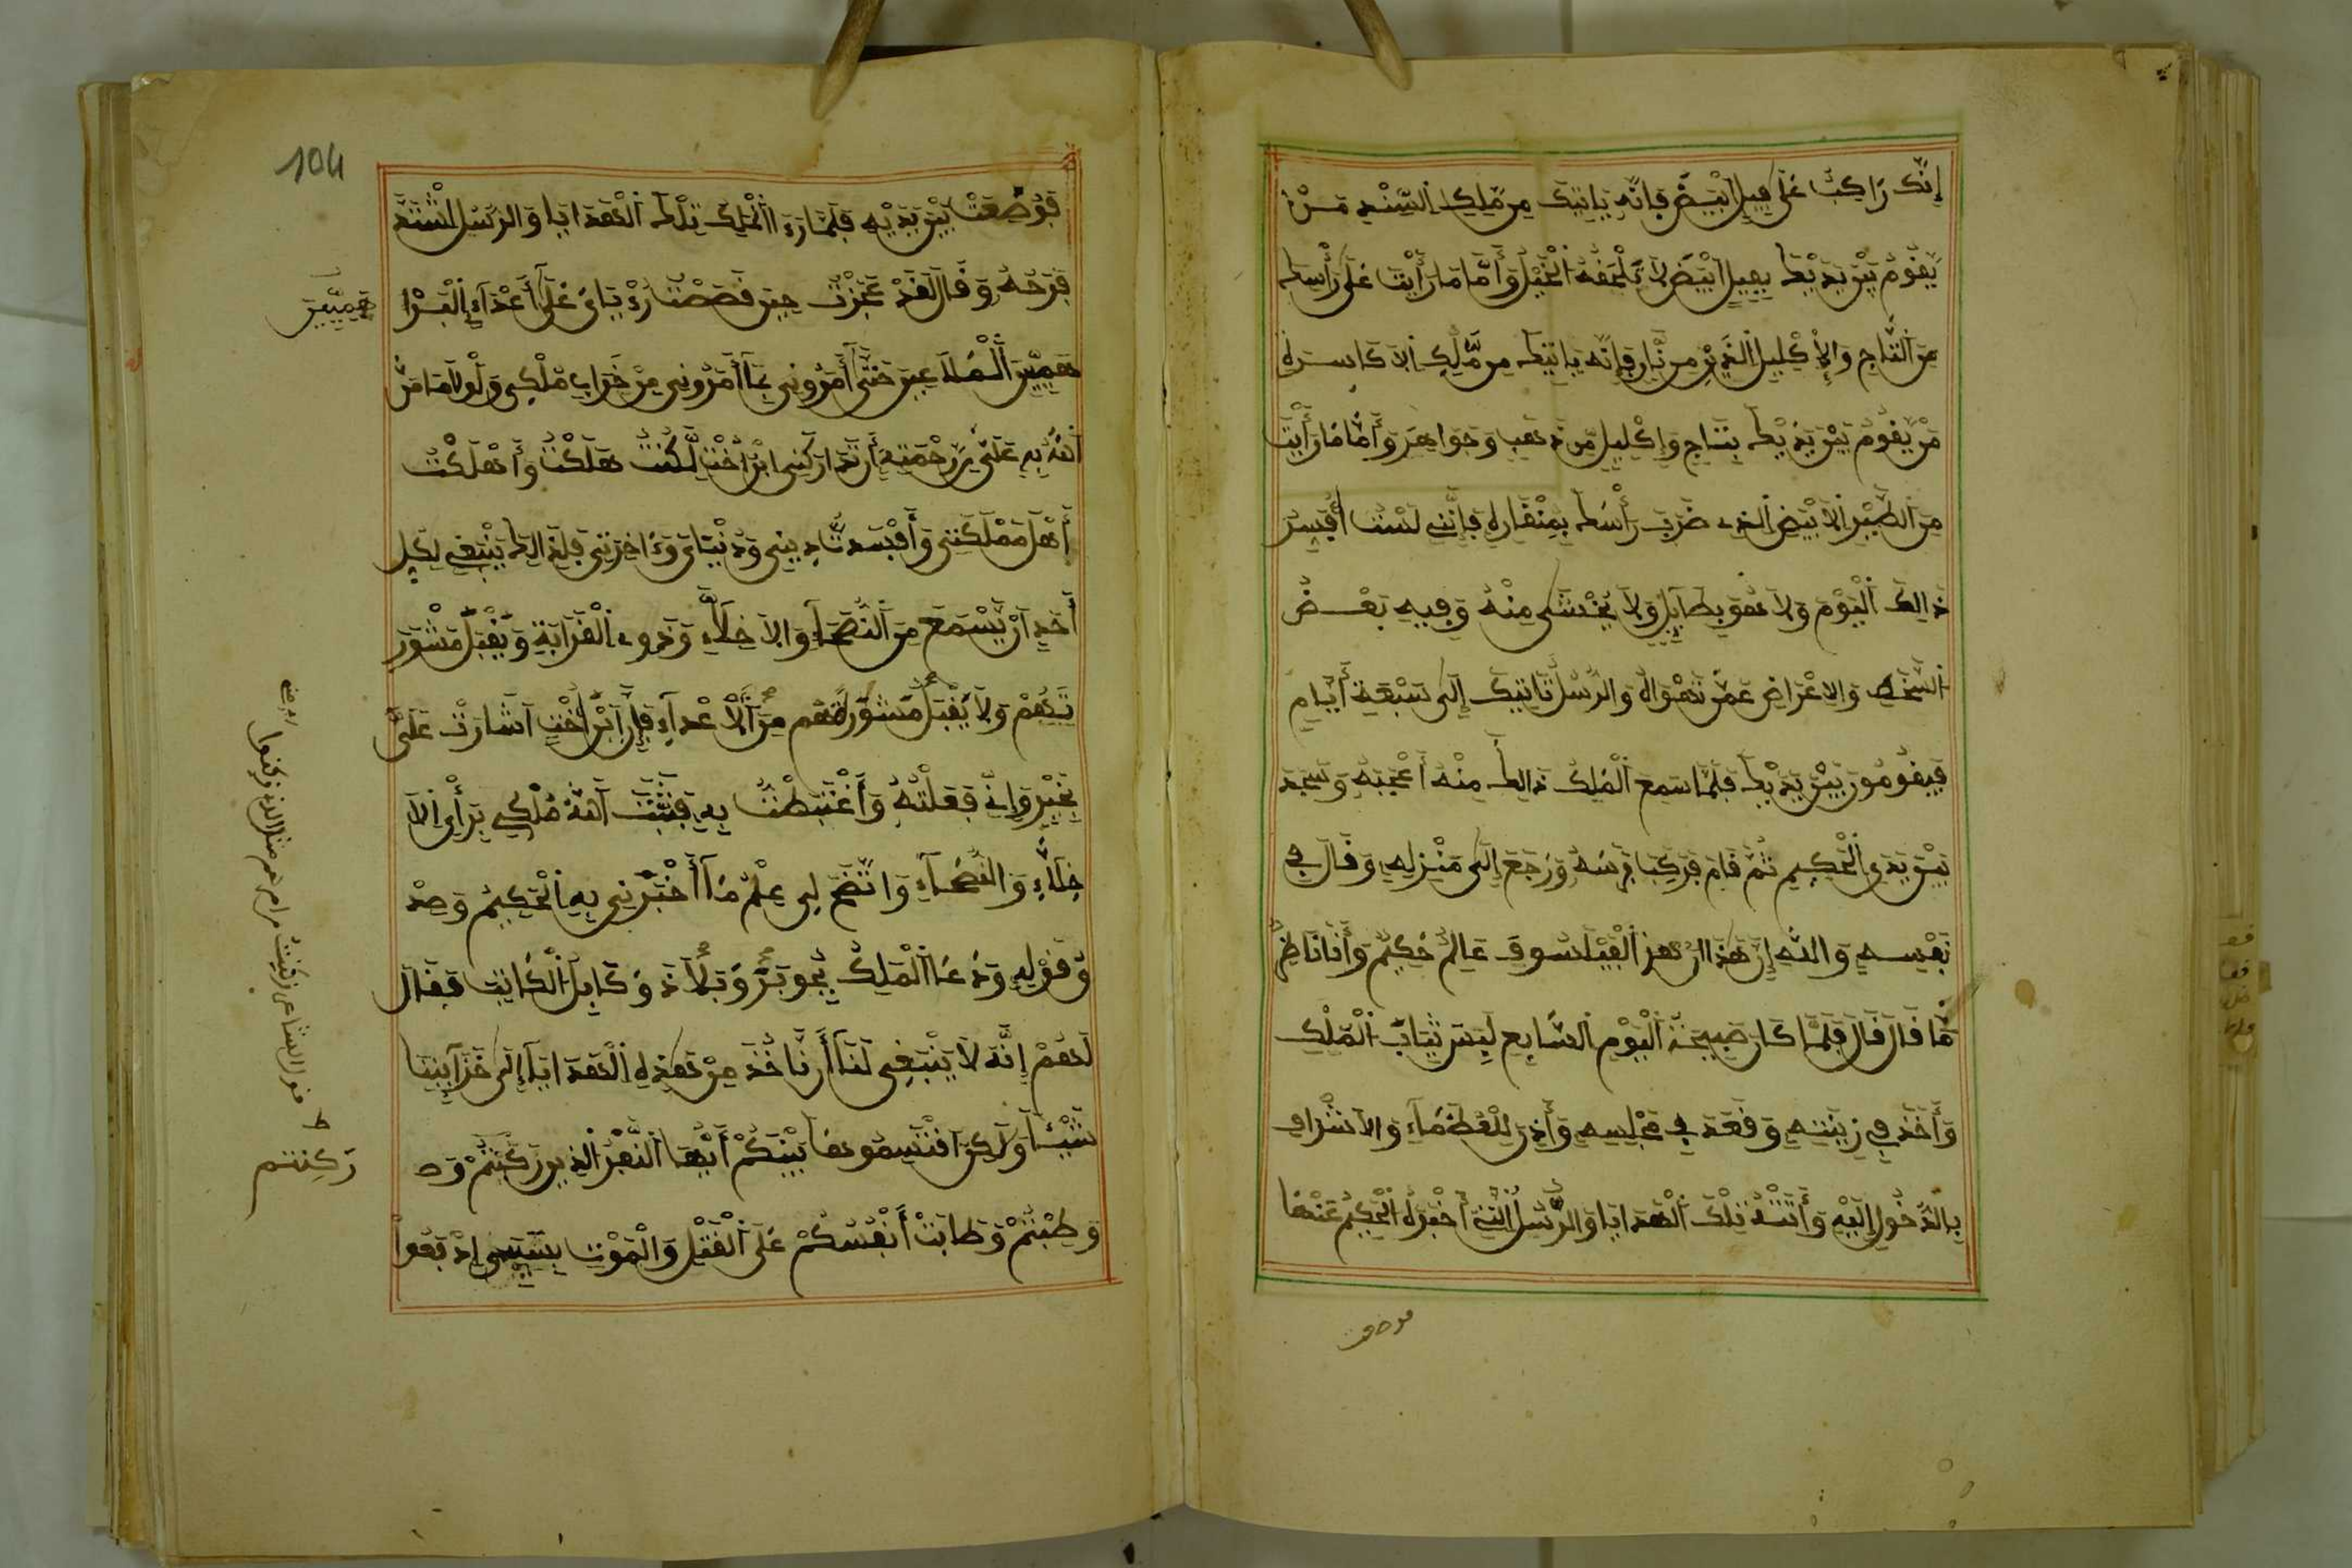 إِنَّكَ رَاكِبٌ عَلَى فِيلٍ أَبْيَضَ فَإِنَّهُ يَاتِيكَ مِن مَّلِكِ السِّنْدِ مَنْ
يَقُومُ بَيْنَ يَدَيْكَ بِفِيلٍ أَبْيَضَ لَا تَلْحَقُهُ الْخَيْلُ وَأَمَّا مَا رَأَيْتَ عَلَى رَأْسِكَ
مِنَ التَّاجِ وَالْإِكْلِيلِ الَّذِي مِن نَّارٍ فَإِنَّهُ يَاتِيكَ مِن مَّلِكِ الاَكَاسِرَةِ
مَنْ يَقُومُ بَيْنَ يَدَيْكَ بِتَاجٍ وَإِكْلِيلٍ مِّن ذَهَبٍ وَجَوَاهِرَ وَأَمَّا مَا رَأَيْتَ
مِنَ الطَّيْرِ الاَبْيَضِ الذِي ضَرَبَ رَأْسَكَ بِمِنْقَارِهِ فَإِنَّنِي لَسْتُ أُفَسِّرُ
ذَالِكَ الْيَوْمَ وَلَا هُوَ بِطَائِلٍ وَلَا يُخْشَى مِنْهُ وَفِيهِ بَعْضُ
السَّخَطِ وَالاِعْرَاضِ عَمَّنْ تَهْوَاهُ وَالرُّسُلُ تَاتِيكَ إِلَى سَبْعَةِ أَيَّامٍ
فَيَقُومُونَ بَيْنَ يَدَيْكَ فَلَمَّا سَمِعَ الْمَلِكُ ذَالِكَ مِنْهُ أَعْجَبَهُ وَسَجَدَ
بَيْنَ يَدَيِ الْحَكِيمِ ثُمَّ قَامَ فَرَكِبَ فَرَسَهُ وَرَجَعَ إِلَى مَنْزِلِهِ وَقَالَ فِي
نَفْسِهِ وَاللَّهِ إِنَّ هَذَا الْفَيْلَسُوفَ عَالِمٌ حَكِيمٌ وَأَنَا نَاظِرٌ
مَّا قَالَ قَالَ فَلَمَّا كَانَ صَبِيحَةُ الْيَوْمِ السَّابِعِ لَبِسَ ثِيَابَ الْمُلْكِ
وَأَخَذَ فِي زِينَتِهِ وَقَعَدَ فِي مَجْلِسِهِ وَأَذِنَ لِلْعُظَمَاءِ وَالاَشْرَافِ
بِالدُّخُولِ إِلَيْهِ وَأَتَتْهُ تِلْكَ الْهَدَايَا وَالرُّسُلُ الَّتِي أَخْبَرَهُ الْحَكِيمُ عَنْهَا
فوضعت
104
فَوُضِعَتْ بَيْنَ يَدَيْهِ فَلَمَّا رَءَا الْمَلِكُ تِلْكَ الْهَدَايَا وَالرُّسُلَ اشْتَدَّ
فَرَحُهُ وَقَالَ لَقَدْ عَجَزْتُ حِينَ قَصَصْتُ رُؤْيَايَ عَلَى أَعْدَاءِ الْبَرَا
هَمِيِّينَ
هَمِيِّينَ الْمَلَاعِينَ حَتَّى أَمَرُونِي بِمَا أَمَرُونِي مِنْ خَرَابِ مُلْكِي وَلَوْلَا مَا مَنَّ
اللَّهُ بِهِ عَلَيَّ مِن رَحْمَتِهِ أَن تَدَارَكَنِي ابْرَاخْتُ لَكُنْتُ هَلَكْتُ وَأَهْلَكْتُ
أَهْلَ مَمْلَكَتِي وَأَفْسَدتُّ دِينِي وَدُنْيَايَ وَءَاخِرَتِي فَلِذَالِكَ يَنْبَغِي لِكُلِّ
أَحَدٍ أَنْ يَسْمَعَ مِنَ النُّصَحَاءِ وَالاَخِلَّاءِ وَذَوِي الْقَرَابَةِ وَيَقْبَلَ مَشْوَرَ
تَهُمْ وَلَا يَقْبَلَ مَشْوَرَةً مِنَ الْأَعْدَاءِ فَإِنَّ ابْرَاخْتَ أَشَارَتْ عَلَيَّ
بِخَيْرٍ وَإِنِّي فَعَلْتُهُ وَاغْتَبَطْتُ بِهِ فَثَبَّتَ اللَّهُ مُلْكِي بِرَأْيِ الاَ
خِلَّاءِ وَالنُّصَحَاءِ وَاتَّضَحَ لِي عِلْمُ مَا أَخْبَرَنِي بِهِ الْحَكِيمُ وَصِدْ
قُ قَوْلِهِ وَدَعَا الْمَلِكُ بِجُوبَرَ وَبَلَاذَ وَكَابِلَ الْكَاتِبِ فَقَالَ
لَهُمْ إِنَّهُ لَا يَنْبَغِي لَنَا أَن نَّاخُذَ مِنْ هَذِهِ الْهَدَايَا إِلَى خَزَائِنِنَا
شَيْئًا وَلَكِنِ اقْتَسِمُوهَا بَيْنَكُمْ أَيُّهَا النَّفَرُ الَّذِينَ رَكَنْتُمْ وَط
رَكِنتم
وَطِبْتُمْ وَطَابَتْ أَنْفُسُكُمْ عَلَى الْقَتْلِ وَالْمَوْتِ بِسَبَبِي إِذْ بَعُوا